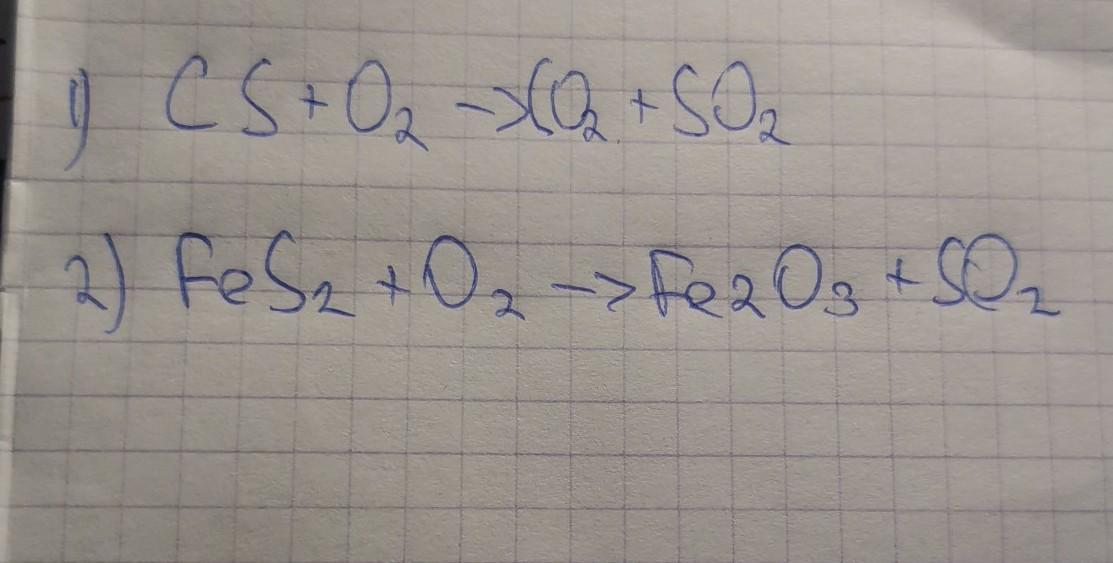 1) CS + O₂ → CO₂ + SO₂
2) FeS₂ + O₂ → Fe₂O₃ + SO₂